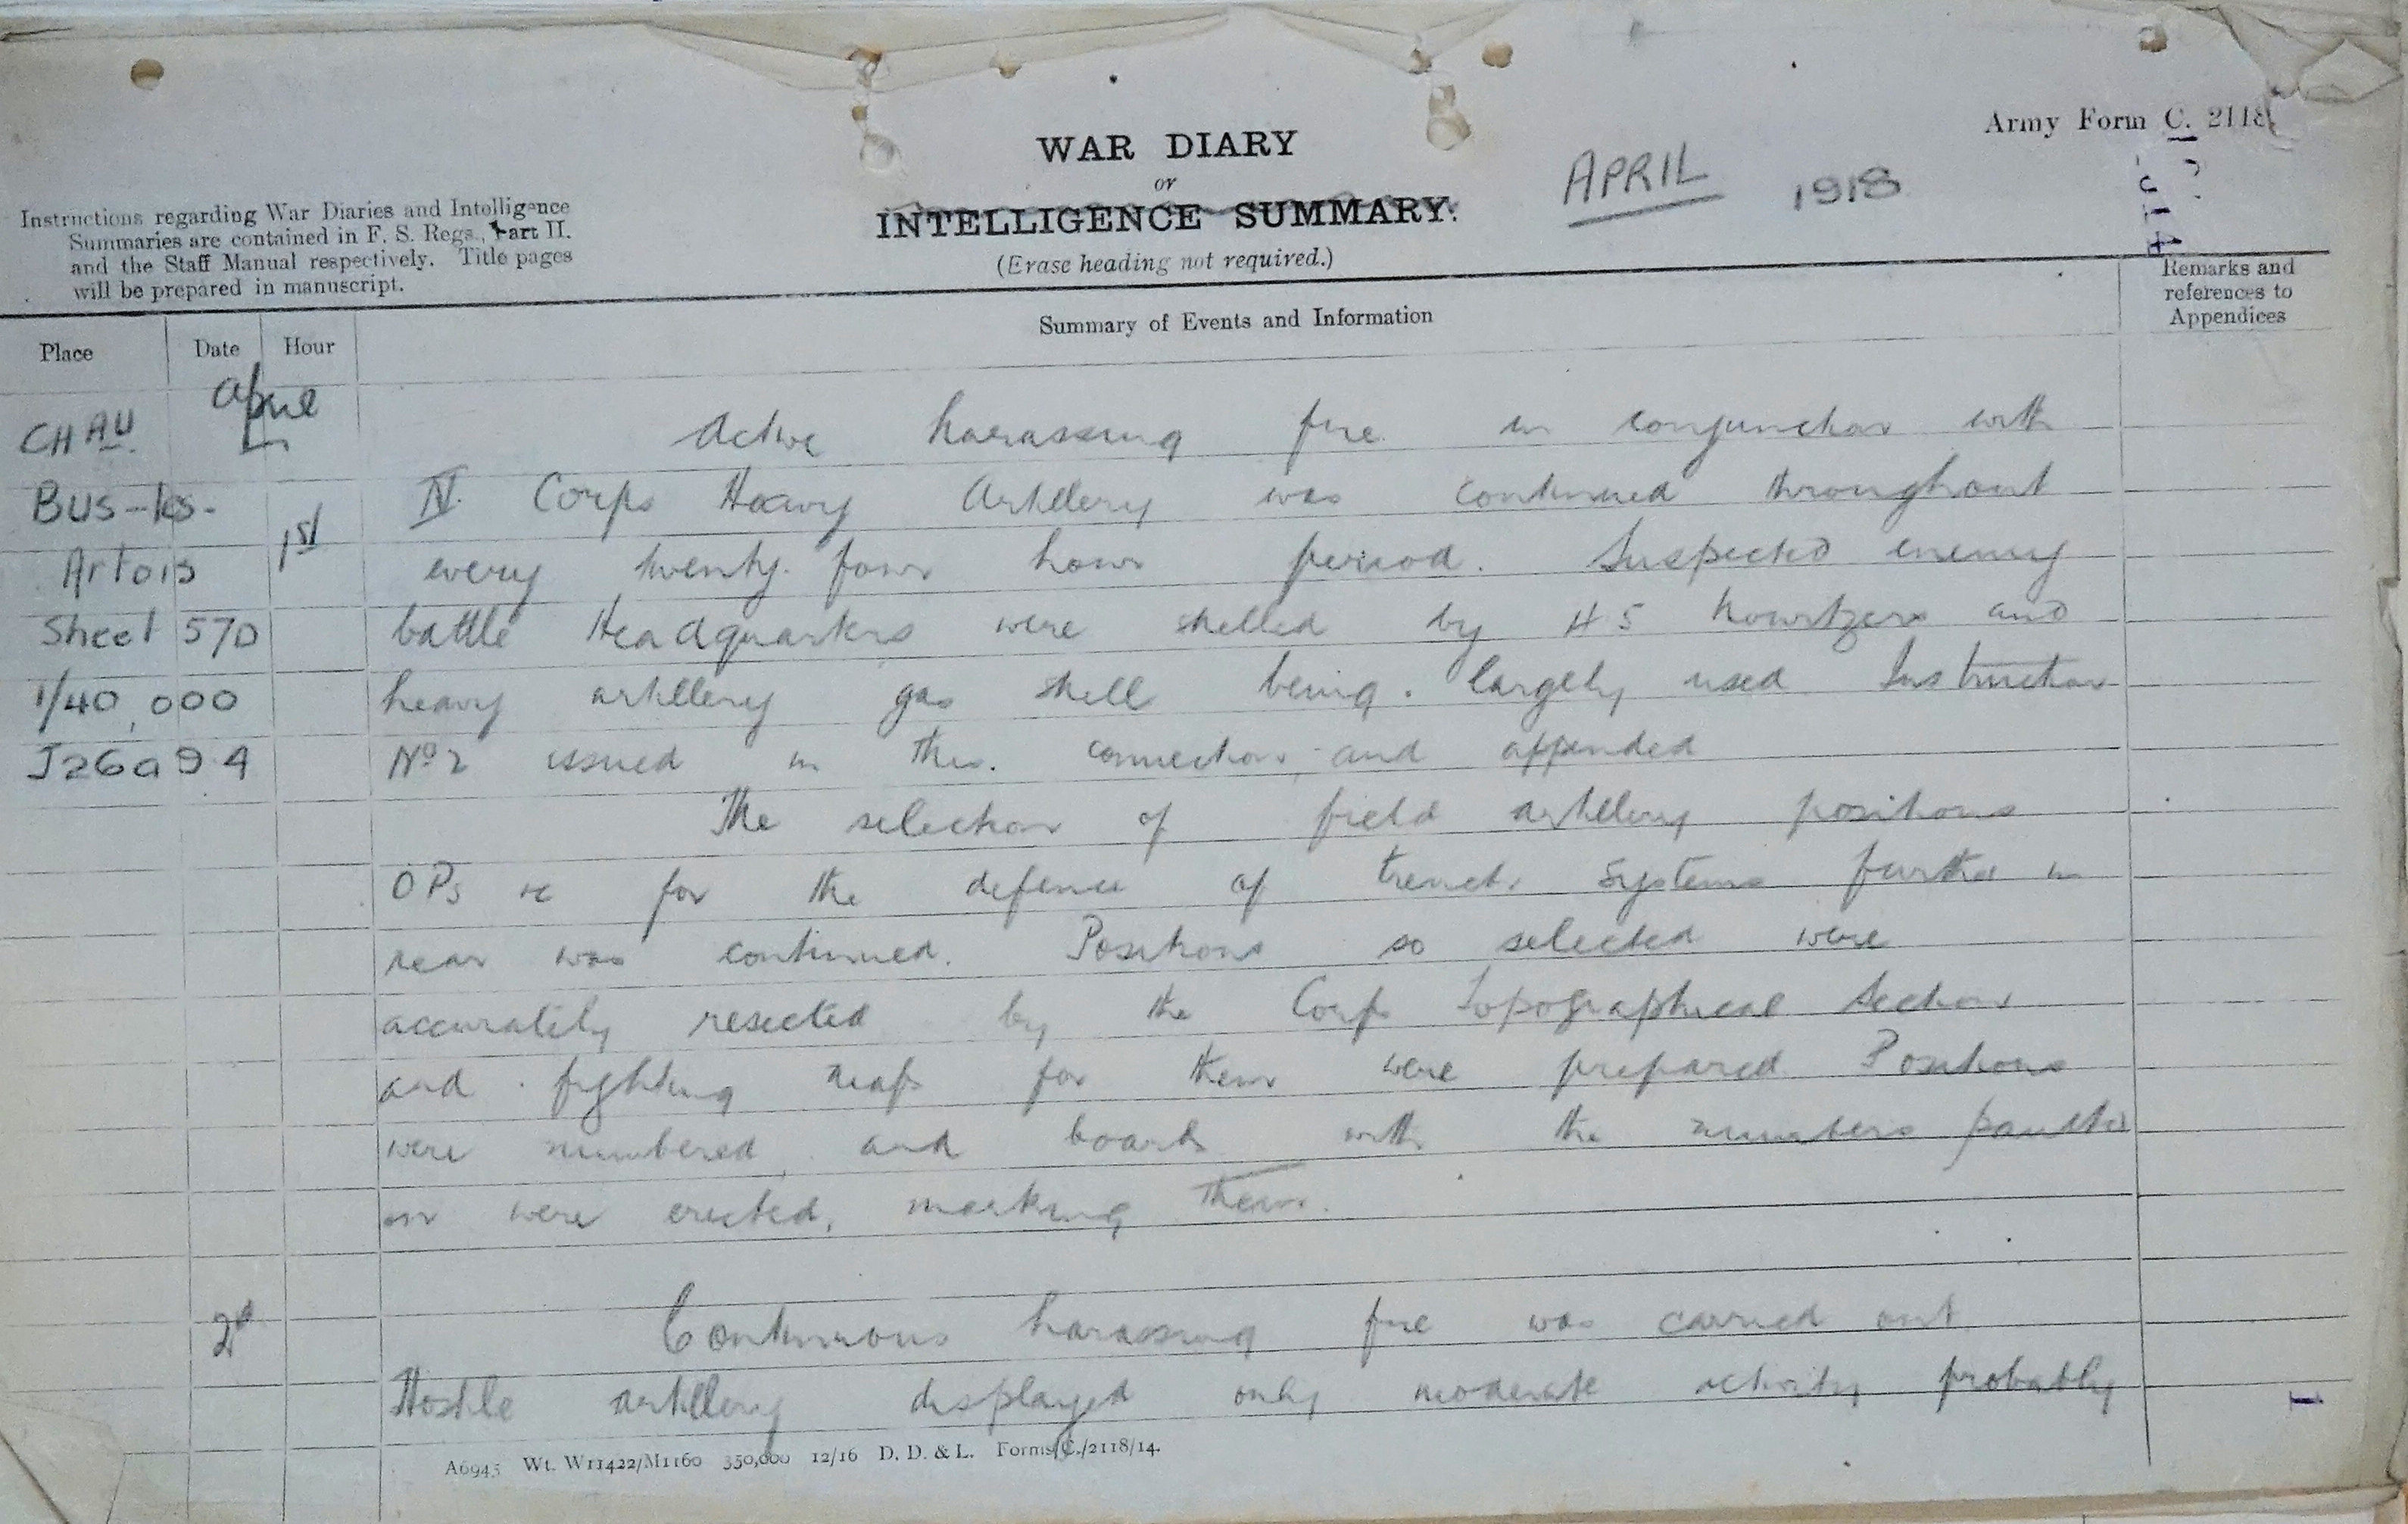 Army Form C. 2118
WAR DIARY
or
INTELLIGENCE SUMMARY.
(Erase heading not required.)
APRIL 1918
Instructions regarding War Diaries and Intelligence
Summaries are contained in F. S. Regs., Part II.
and the Staff Manual respectively. Title pages
will be prepared in manuscript.
Place Date Hour
Summary of Events and Information
Remarks and
references to
Appendices
April
CHAU. Active harassing fire in conjunction with
Bus-les- IV. Corps Heavy Artillery was continued throughout
Artois 1st every twenty four hour period. Suspected enemy
Sheet 57D battle Headquarters were shelled by 4 5 howitzers and
1/40,000 heavy artillery gas shell being largely used Instruction
J26a94 No 2 issued in this connection and appended
The selection of field artillery positions
OPs &c for the defence of trench systems further in
rear was continued. Positions so selected were
accurately resected by the Corps Topographical Section
and fighting maps for them were prepared. Positions
were numbered, and boards with the numbers painted
on were erected, marking them.
2d Continuous harassing fire was carried out
Hostile artillery displayed only moderate activity probably
A6945 Wt. W11422/M1160 350,000 12/16 D. D. & L. Forms/C./2118/14.
1